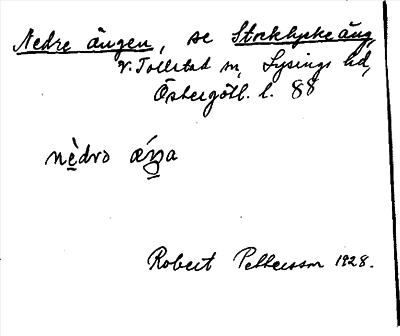 Nedre ängen, se Stocklycke äng,
V. Tollstad sn, Lysings hd,
Östergötl. l. 88
nèdrə ǽŋa
Robert Pettersson 1928.